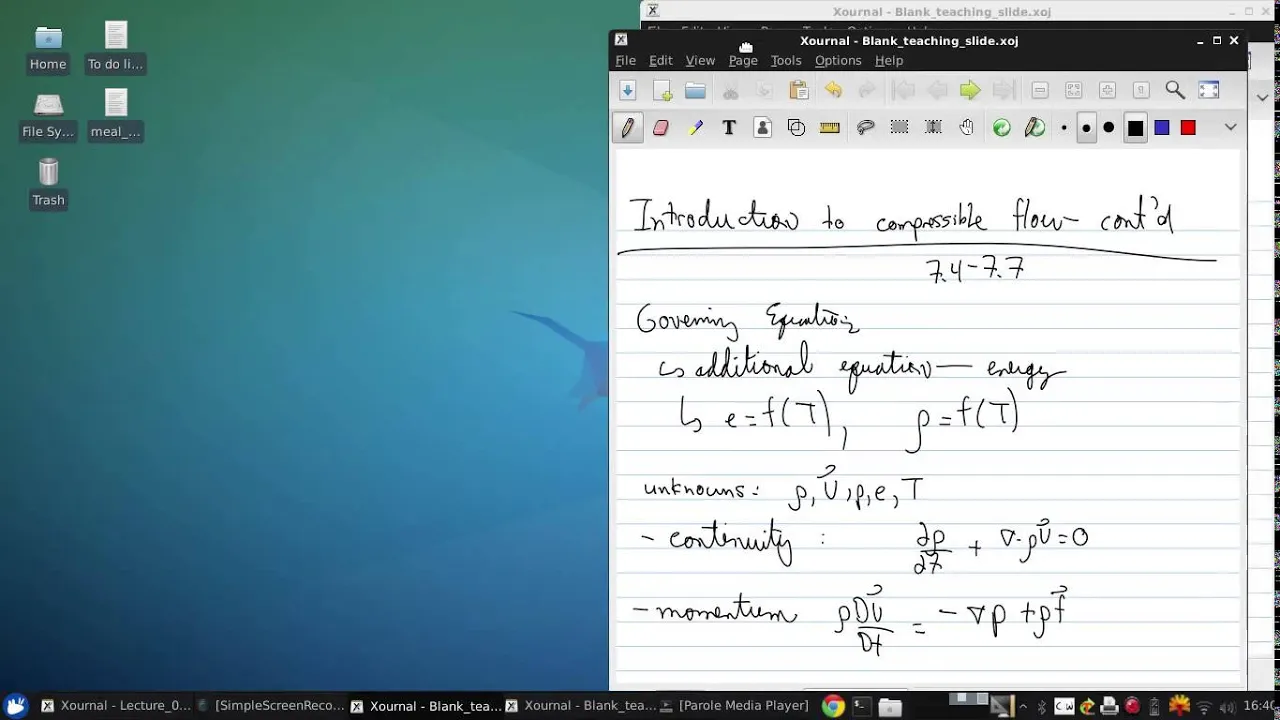 Xournal - Blank_teaching_slide.xoj
Home
To do li...
File Sy...
meal_...
Trash
Xournal - Blank_teaching_slide.xoj
File Edit View Page Tools Options Help
Introduction to compressible flow - cont'd
7.4-7.7
Governing Equations
↳ additional equation — energy
↳ e = f(T), ρ = f(T)
unknowns: ρ, U⃗, p, e, T
- continuity : ∂ρ/∂t + ∇·ρU⃗ = 0
- momentum ρ DU⃗/Dt = -∇p + ρf⃗
Xournal - Lecture_0...
[SimpleScreenReco...
Xournal - Blank_tea...
Xournal - Blank_tea...
[Parole Media Player]
16:40